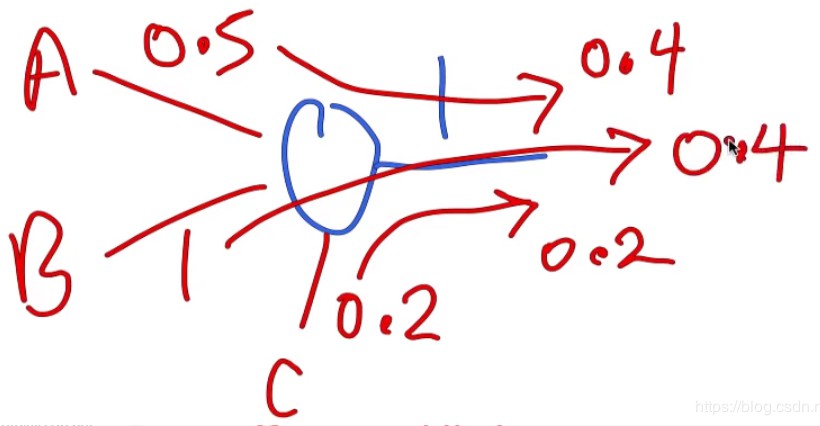 A 0.5 1 0.4
0.4
B 1 0.2
0.2
C
https://blog.csdn.n